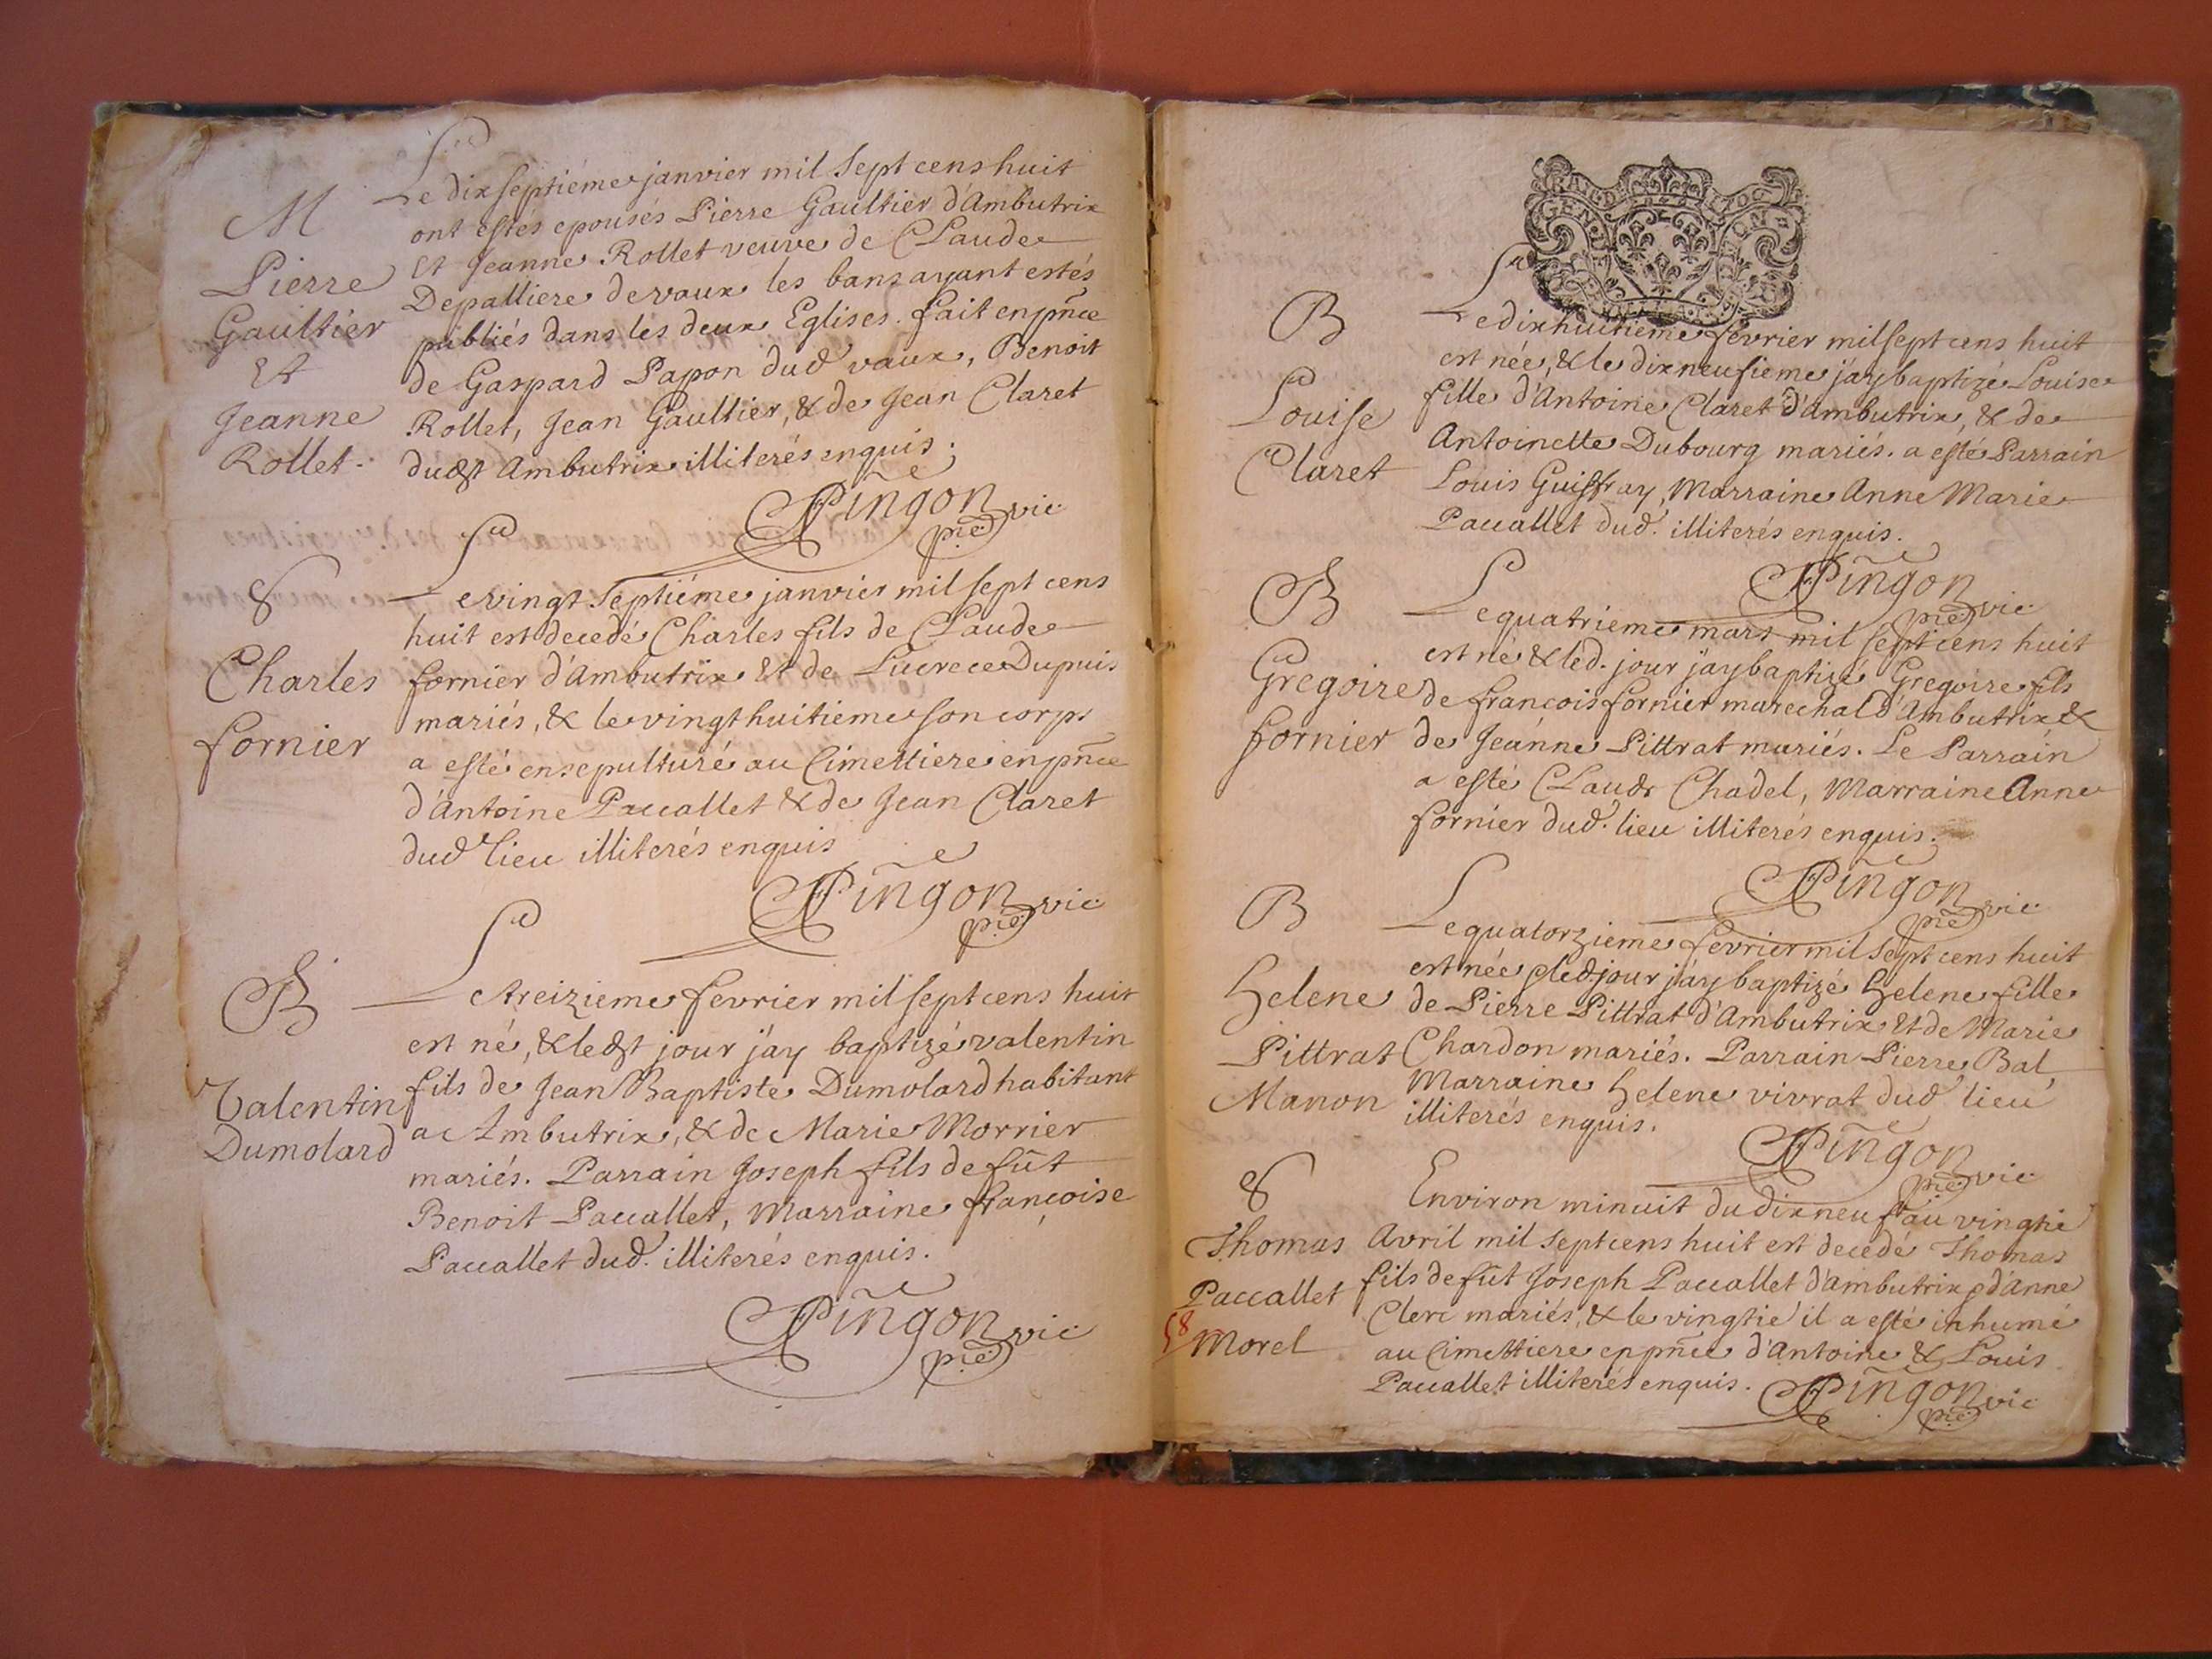 M
Pierre
Gaultier
Et
Jeanne
Rollet.
Le dixseptiéme janvier mil sept cens huit
ont estés epousés Pierre Gaultier d'Ambutrix
et Jeanne Rollet veuve de Claude
Depalliere devaux les bans ayant estés
publiés dans les deux Eglises. fait en pñce
de Gaspard Papon dud vaux, Benoit
Rollet, Jean Gaultier, & de Jean Claret
dudt Ambutrix illiterés enquis.
Pingon vic
pñe
S
Charles
fornier
Le vingt septiéme janvier mil sept cens
huit est decedé Charles fils de Claude
fornier d'Ambutrix Et de Lucrece Dupuis
mariés, & le vingt huitieme son corps
a esté ensepulturé au Cimettiere en pñce
d'Antoine Paccallet & de Jean Claret
dud lieu illiterés enquis
Pingon vic
pñe
B
Valentin
Dumolard
Le treizieme fevrier mil sept cens huit
est né, & ledt jour j'ay baptizé valentin
fils de Jean Baptiste Dumolard habitant
a Ambutrix, & de Marie Morrier
mariés. Parrain Joseph fils de fût
Benoit Paccallet, Marraine françoise
Paccallet dud. illiterés enquis.
Pingon vic
pñe
GEN D
B
Louise
Claret
Le dixhuitieme fevrier mil sept cens huit
est née, & le dixneufieme j'ay baptizé Louise
fille d'Antoine Claret d'Ambutrix, & de
Antoinette Dubourg mariés. a esté Parrain
Louis Guiffray, Marraine Anne Marie
Paccallet dud. illiterés enquis.
Pingon vic
pñe
B
Gregoire
fornier
Le quatriéme mars mil sept cens huit
est né & led. jour j'ay baptizé Gregoire fils
de francois fornier marechal d'Ambutrix &
de Jeanne Pittrat mariés. Le Parrain
a esté Claude Chadel, Marraine Anne
fornier dud. lieu illiterés enquis.
Pingon vic
pñe
B
Helene
Pittrat
Manon
Le quatorzieme fevrier mil sept cens huit
est née & led jour j'ay baptizé Helene fille
de Pierre Pittrat d'Ambutrix Et de Marie
Chardon mariés. Parrain Pierre Bal,
Marraine Helene vivrat dud lieu
illiterés enquis.
Pingon vic
pñe
S
Thomas
Paccallet
58
Morel
Environ minuit du dixneuf au vingtie
Avril mil sept cens huit est decedé Thomas
fils de fût Joseph Paccallet d'ambutrix & d'Anne
Clerc mariés, & le vingtie il a esté inhumé
au Cimettiere en pñce d'Antoine & Louis
Paccallet illiterés enquis.
Pingon vic
pñe